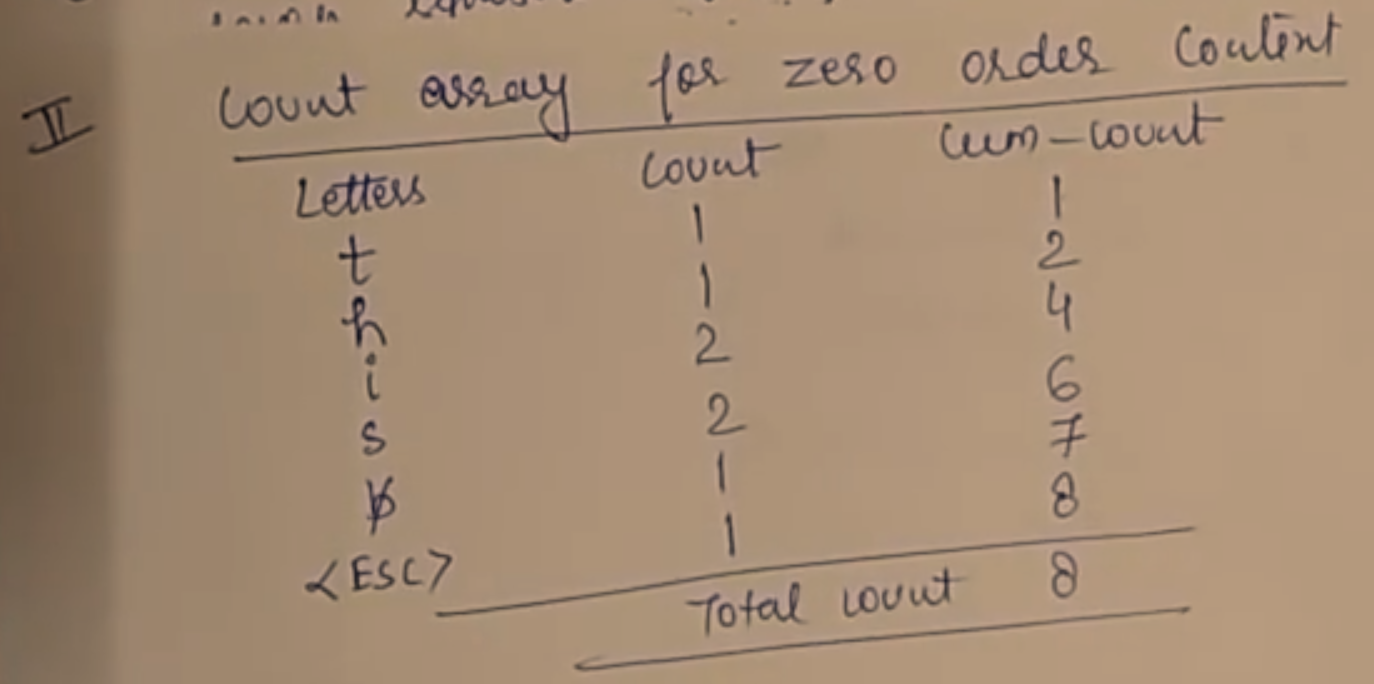 II Count array for zero order Context
Letters Count Cum-count
t 1 1
h 1 2
i 2 4
s 2 6
ƀ 1 7
<ESC> 1 8
Total count 8